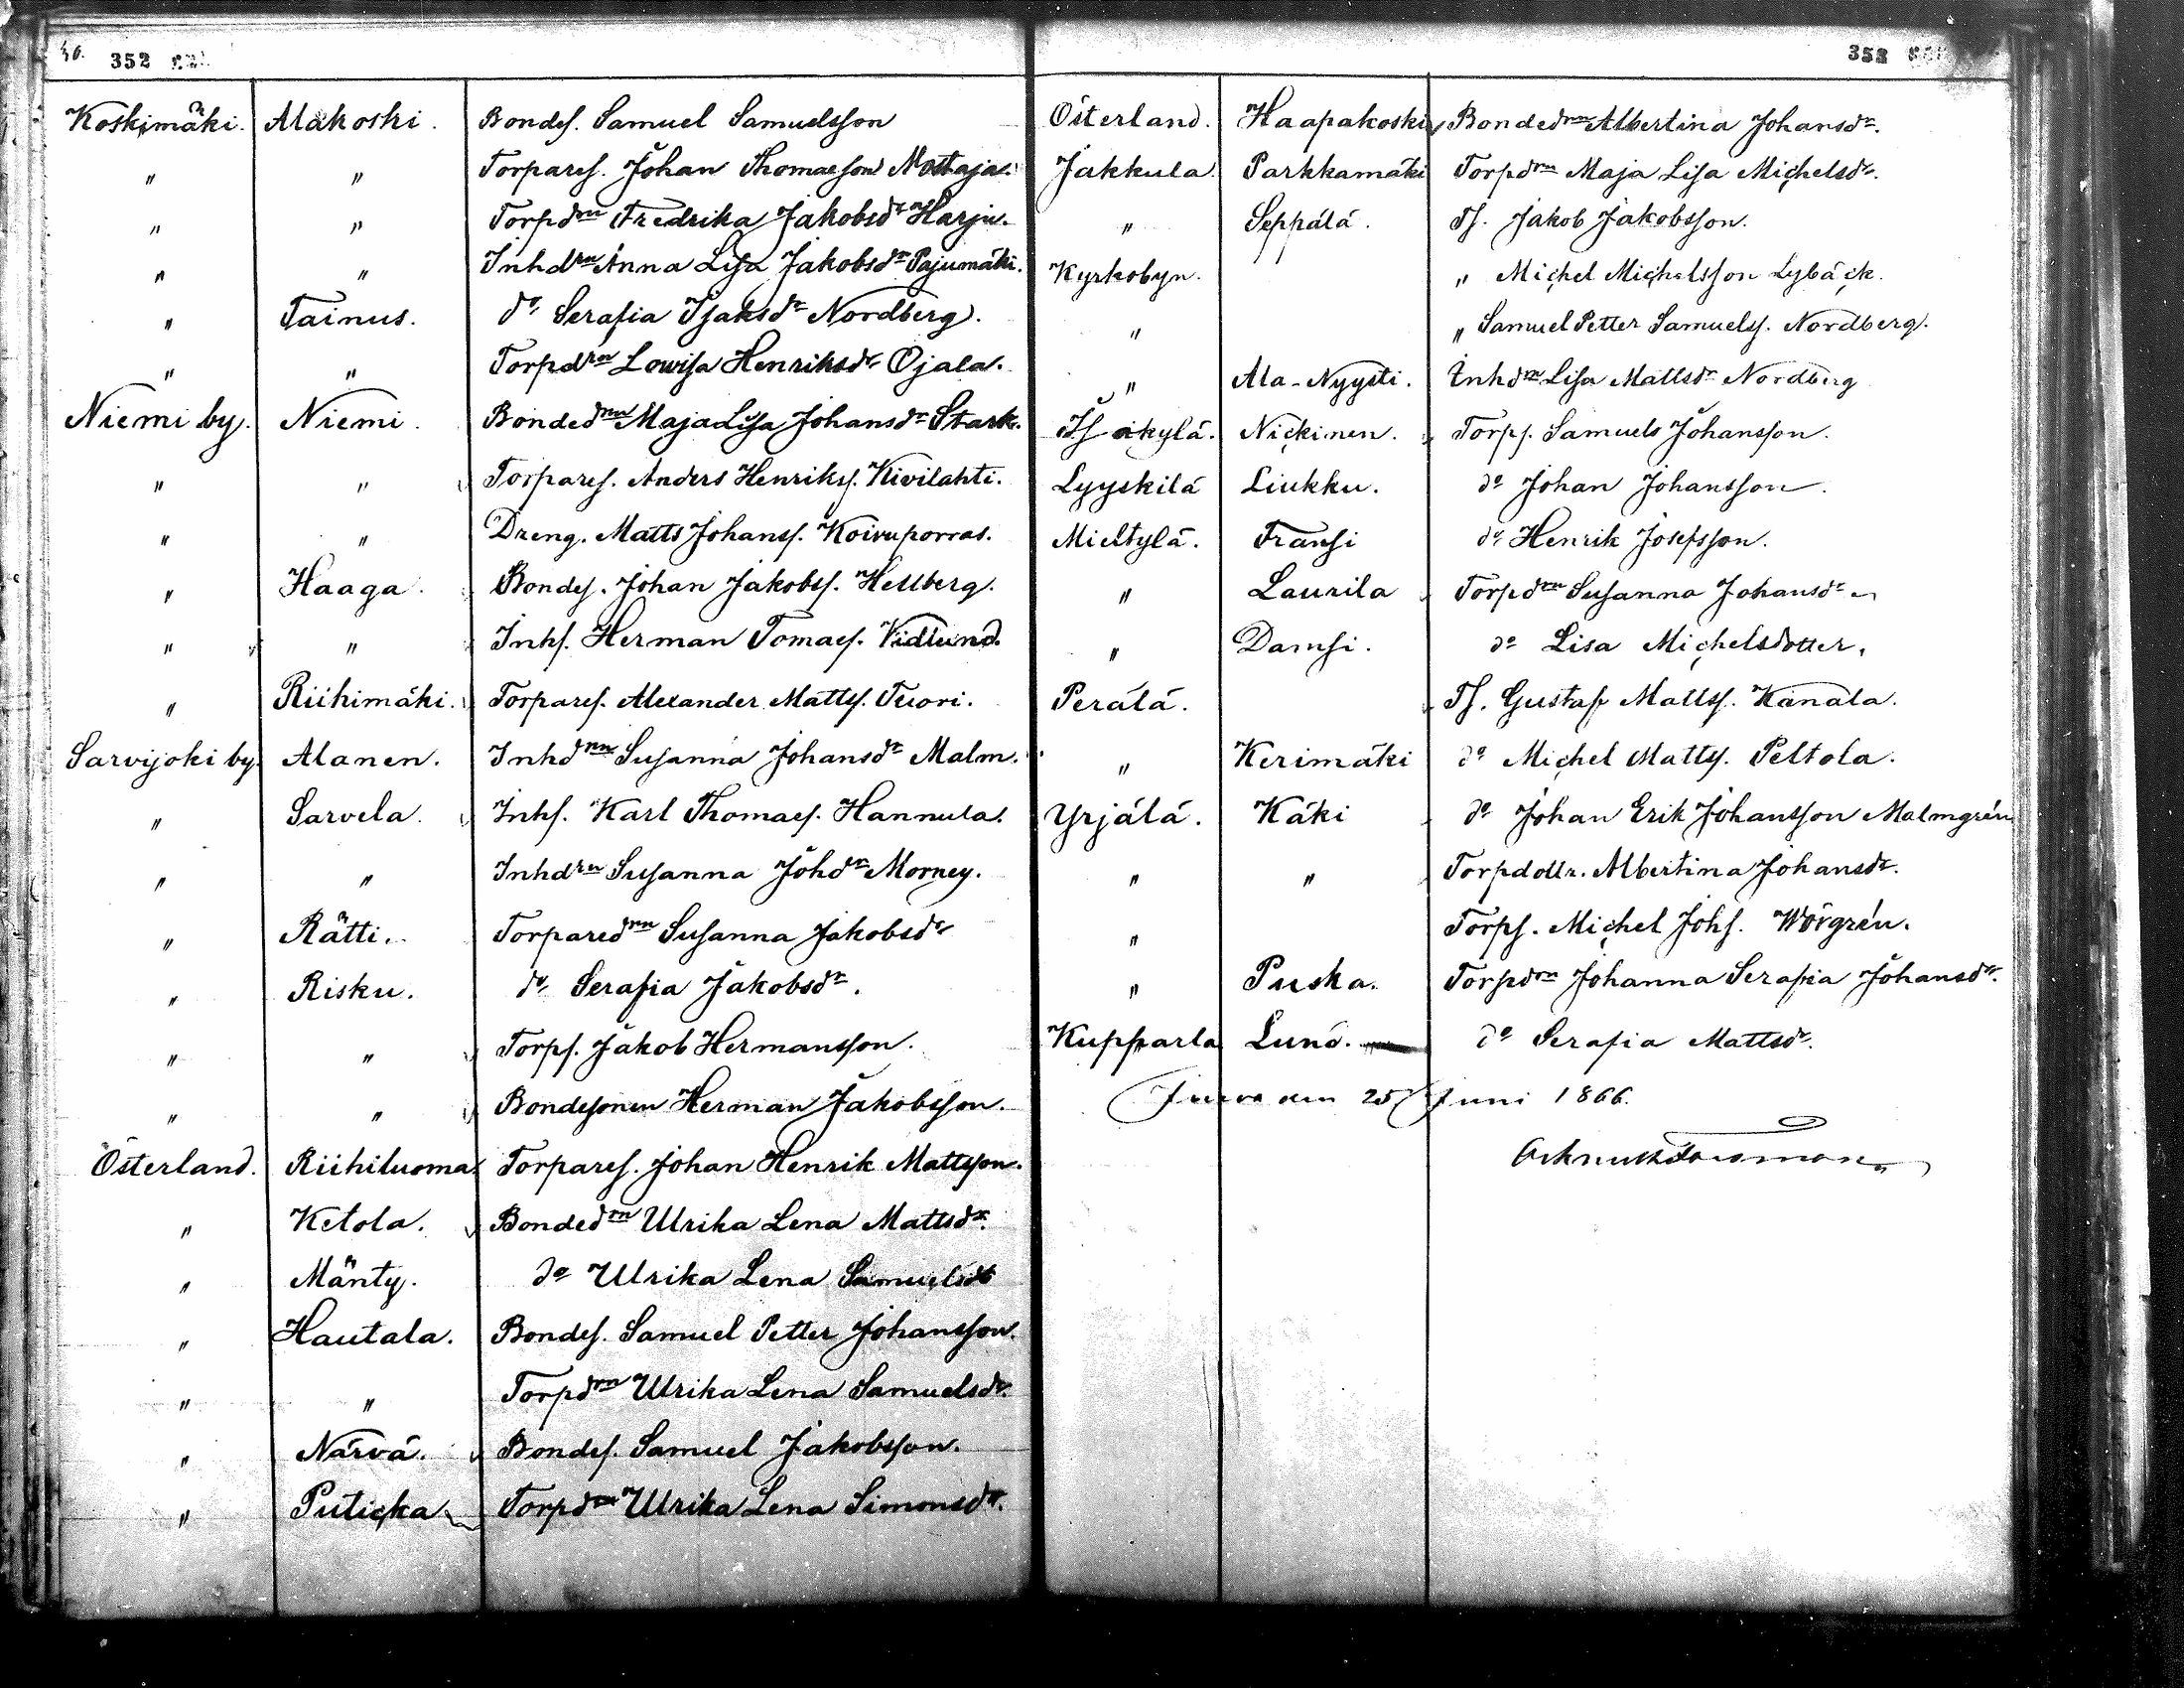 40. 352
Koskimäki. Alakoski. Bondes. Samuel Samuelsson
" " Torpares. Johan Thomaeson Mottaja.
" " Torpdrn Fredrika Jakobsdr Harju.
" " Inhdrn Anna Lisa Jakobsdr Pajumäki.
" Tainus. do Serafia Isaksdr Nordberg.
" " Torpdrn Lowisa Henriksdr Ojala.
Niemi by. Niemi. Bondedrn Maja Lisa Johansdr Stark.
" " Torpares. Anders Henrikss. Kivilahti.
" " Dreng. Matts Johanss. Koivuporras.
" Haaga. Bondes. Johan Jakobss. Hellberg.
" " Inhs. Herman Tomaes. Vidlund.
" Riihimäki. Torpares. Alexander Mattss. Tuori.
Sarvijoki by Alanen. Inhdrn Susanna Johansdr Malm.
" Sarvela. Inhs. Karl Thomaes. Hannula.
" " Inhdrn Susanna Johdr Morney.
" Rätti. Torparedrn Susanna Jakobsdr
" Risku. do Serafia Jakobsdr.
" " Torps. Jakob Hermansson.
" " Bondesonen Herman Jakobsson.
Österland. Riihiluoma Torpares. Johan Henrik Mattsson.
" Ketola. Bondedrn Ulrika Lena Mattsdr.
" Mänty. do Ulrika Lena Samuelsdr
" Hautala. Bondes. Samuel Petter Johansson.
" " Torpdrn Ulrika Lena Samuelsdr.
" Närvä. Bondes. Samuel Jakobsson.
" Puticka Torpdrn Ulrika Lena Simonsdr.
353
Österland. Haapakoski Bondedrn Albertina Johansdr.
Jakkula Parkkamäki Torpdrn Maja Lisa Michelsdr.
" Seppälä. Ts. Jakob Jakobsson.
Kyrkobyn. " Michel Michelsson Lybäck.
" " Samuel Petter Samuelss. Nordberg.
" Ala-Nyysti. Inhdrn Lisa Mattsdr Nordberg
Isokylä. Nickinen. Torps. Samuels Johansson.
Lyyskilä Liukku. do Johan Johansson.
Mieltylä. Fransi do Henrik Josefsson.
" Laurila Torpdrn Susanna Johansdr
" Damsi. do Lisa Michelsdotter.
Perälä. Ts. Gustaf Mattss. Kanala.
" Kerimäki do Michel Mattss. Peltola.
Yrjälä. Käki do Johan Erik Johansson Malmgrén
" " Torpdottr. Albertina Johansdr.
" Torps. Michel Johs. Wörgrén.
" Puska. Torpdrn Johanna Serafia Johansdr.
Kupparla Lund. do Serafia Mattsdr.
Jurva den 25 Juni 1866.